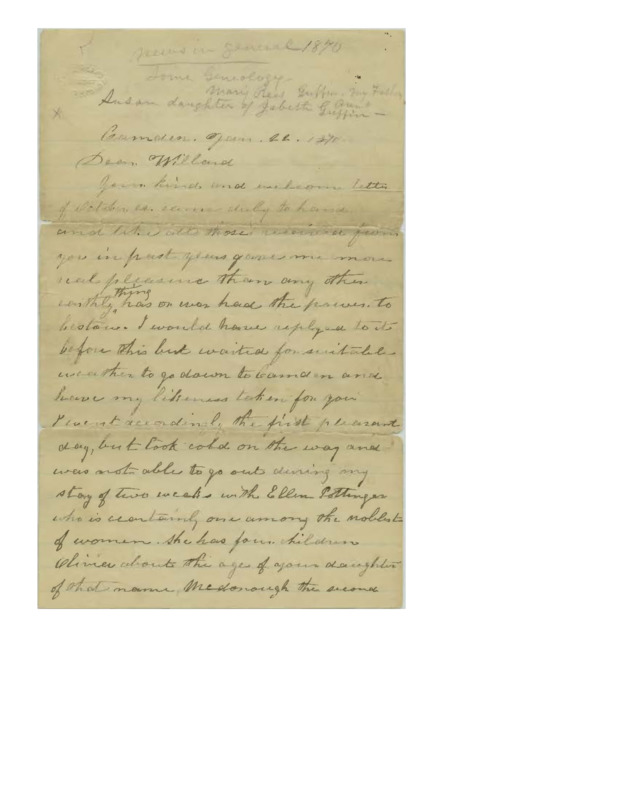 News in general 1870
Some Geneology
Mary Ross Griffin. Father
Susan daughter of Jabesh G. Griffin —
Camden. Jan. 26. 1870
Dear Willard
Your kind and welcome letter
of October came duly to hand
and like all those received from
you in past years gave me more
real pleasure than any other
earthly thing has or ever had the power to
bestow. I would have replyed to it
before this but waited for suitable
weather to go down to Camden and
have my likeness taken for you
I went accordingly the first pleasant
day, but took cold on the way and
was not able to go out during my
stay of two weeks with Ellen Pottenger
who is certainly one among the noblest
of women. She has four children
Olivia about the age of your daughter
of that name, McDonough the second